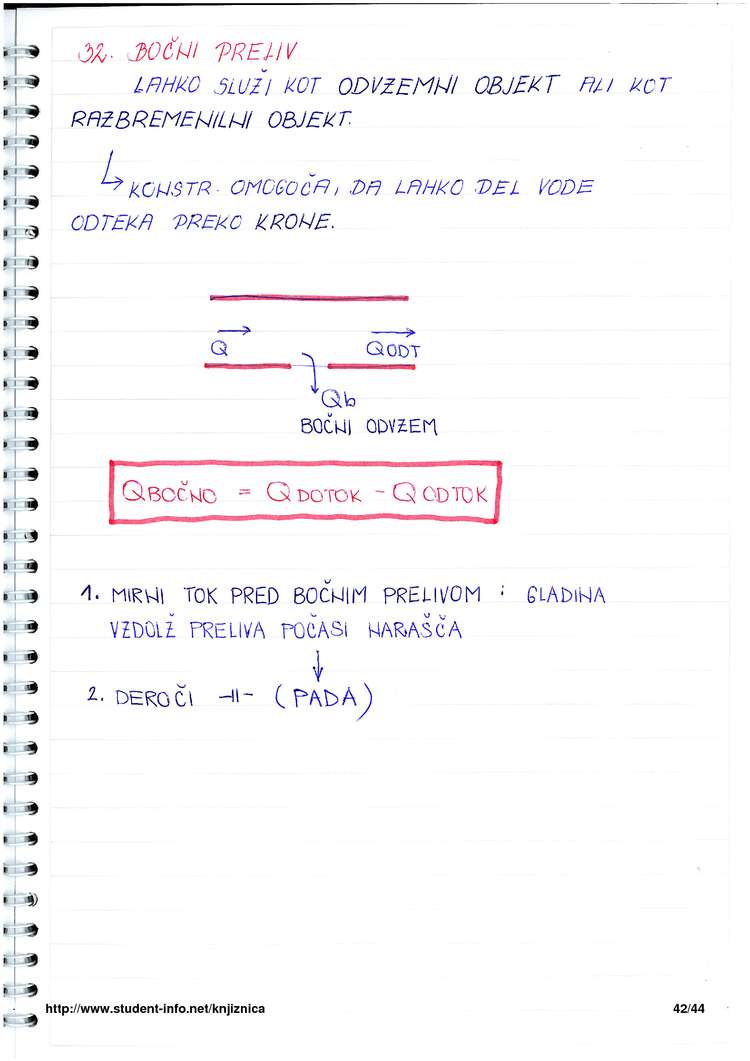 32. BOČNI PRELIV
LAHKO SLUŽI KOT ODVZEMNI OBJEKT ALI KOT
RAZBREMENILNI OBJEKT.
↳ KONSTR. OMOGOČA, DA LAHKO DEL VODE
ODTEKA PREKO KRONE.
Q QODT
Qb
BOČNI ODVZEM
QBOČNO = QDOTOK - QODTOK
1. MIRNI TOK PRED BOČNIM PRELIVOM : GLADINA
VZDOLŽ PRELIVA POČASI NARAŠČA
↓
2. DEROČI -||- (PADA)
http://www.student-info.net/knjiznica 42/44